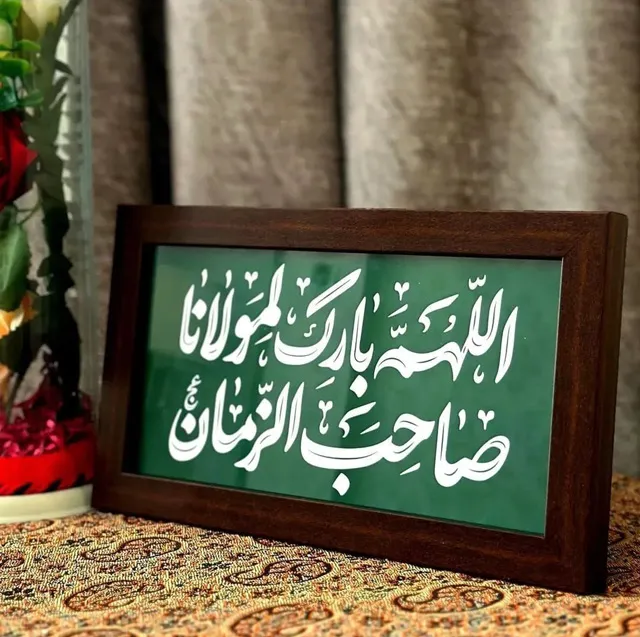 اللّهمَّ بارك لمولانا
صاحبَ الزّمان عج